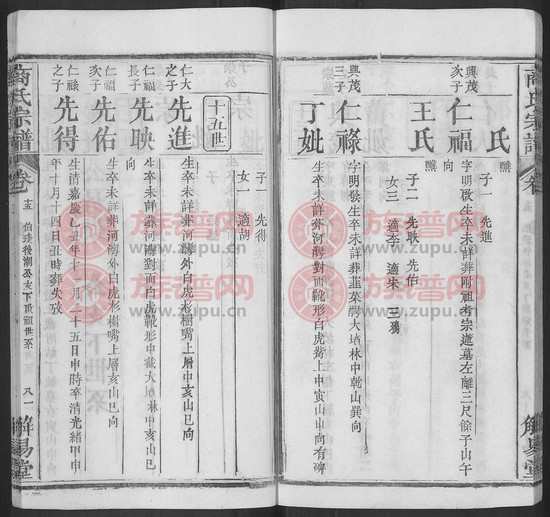 商氏宗譜
卷
解易堂
氏
子一 先進
興茂次子
仁福
字明啟生卒未詳葬附祖考宗進墓左離三尺餘子山午向
王氏
子二 先映 先佑
女三 適李 適朱 三殤
興茂三子
仁祿
字明發生卒未詳葬韮菜灣大坟林中乾山巽向
丁妣
生卒未詳葬河灣對面靴形白虎嘴上中寅山中向有碑
子一 先得
女一 適胡
十五世
仁大之子
先進
生卒未詳葬河灣外白虎杉樹嘴上層中亥山巳向
仁福長子
先映
生卒未詳葬河灣對面白虎靴形中截大坟林中亥山巳向
仁福次子
先佑
生卒未詳葬河灣外白虎杉樹嘴上層亥山巳向
仁祿之子
先得
生清嘉慶乙丑年十一月二十五日申時卒清光緒甲申年十月十四日丑時葬失攷
商氏宗譜
卷
又一
解易堂
族譜网
www.zupu.cn
族譜网
www.zupu.cn
族譜网
www.zupu.cn
族譜网
www.zupu.cn